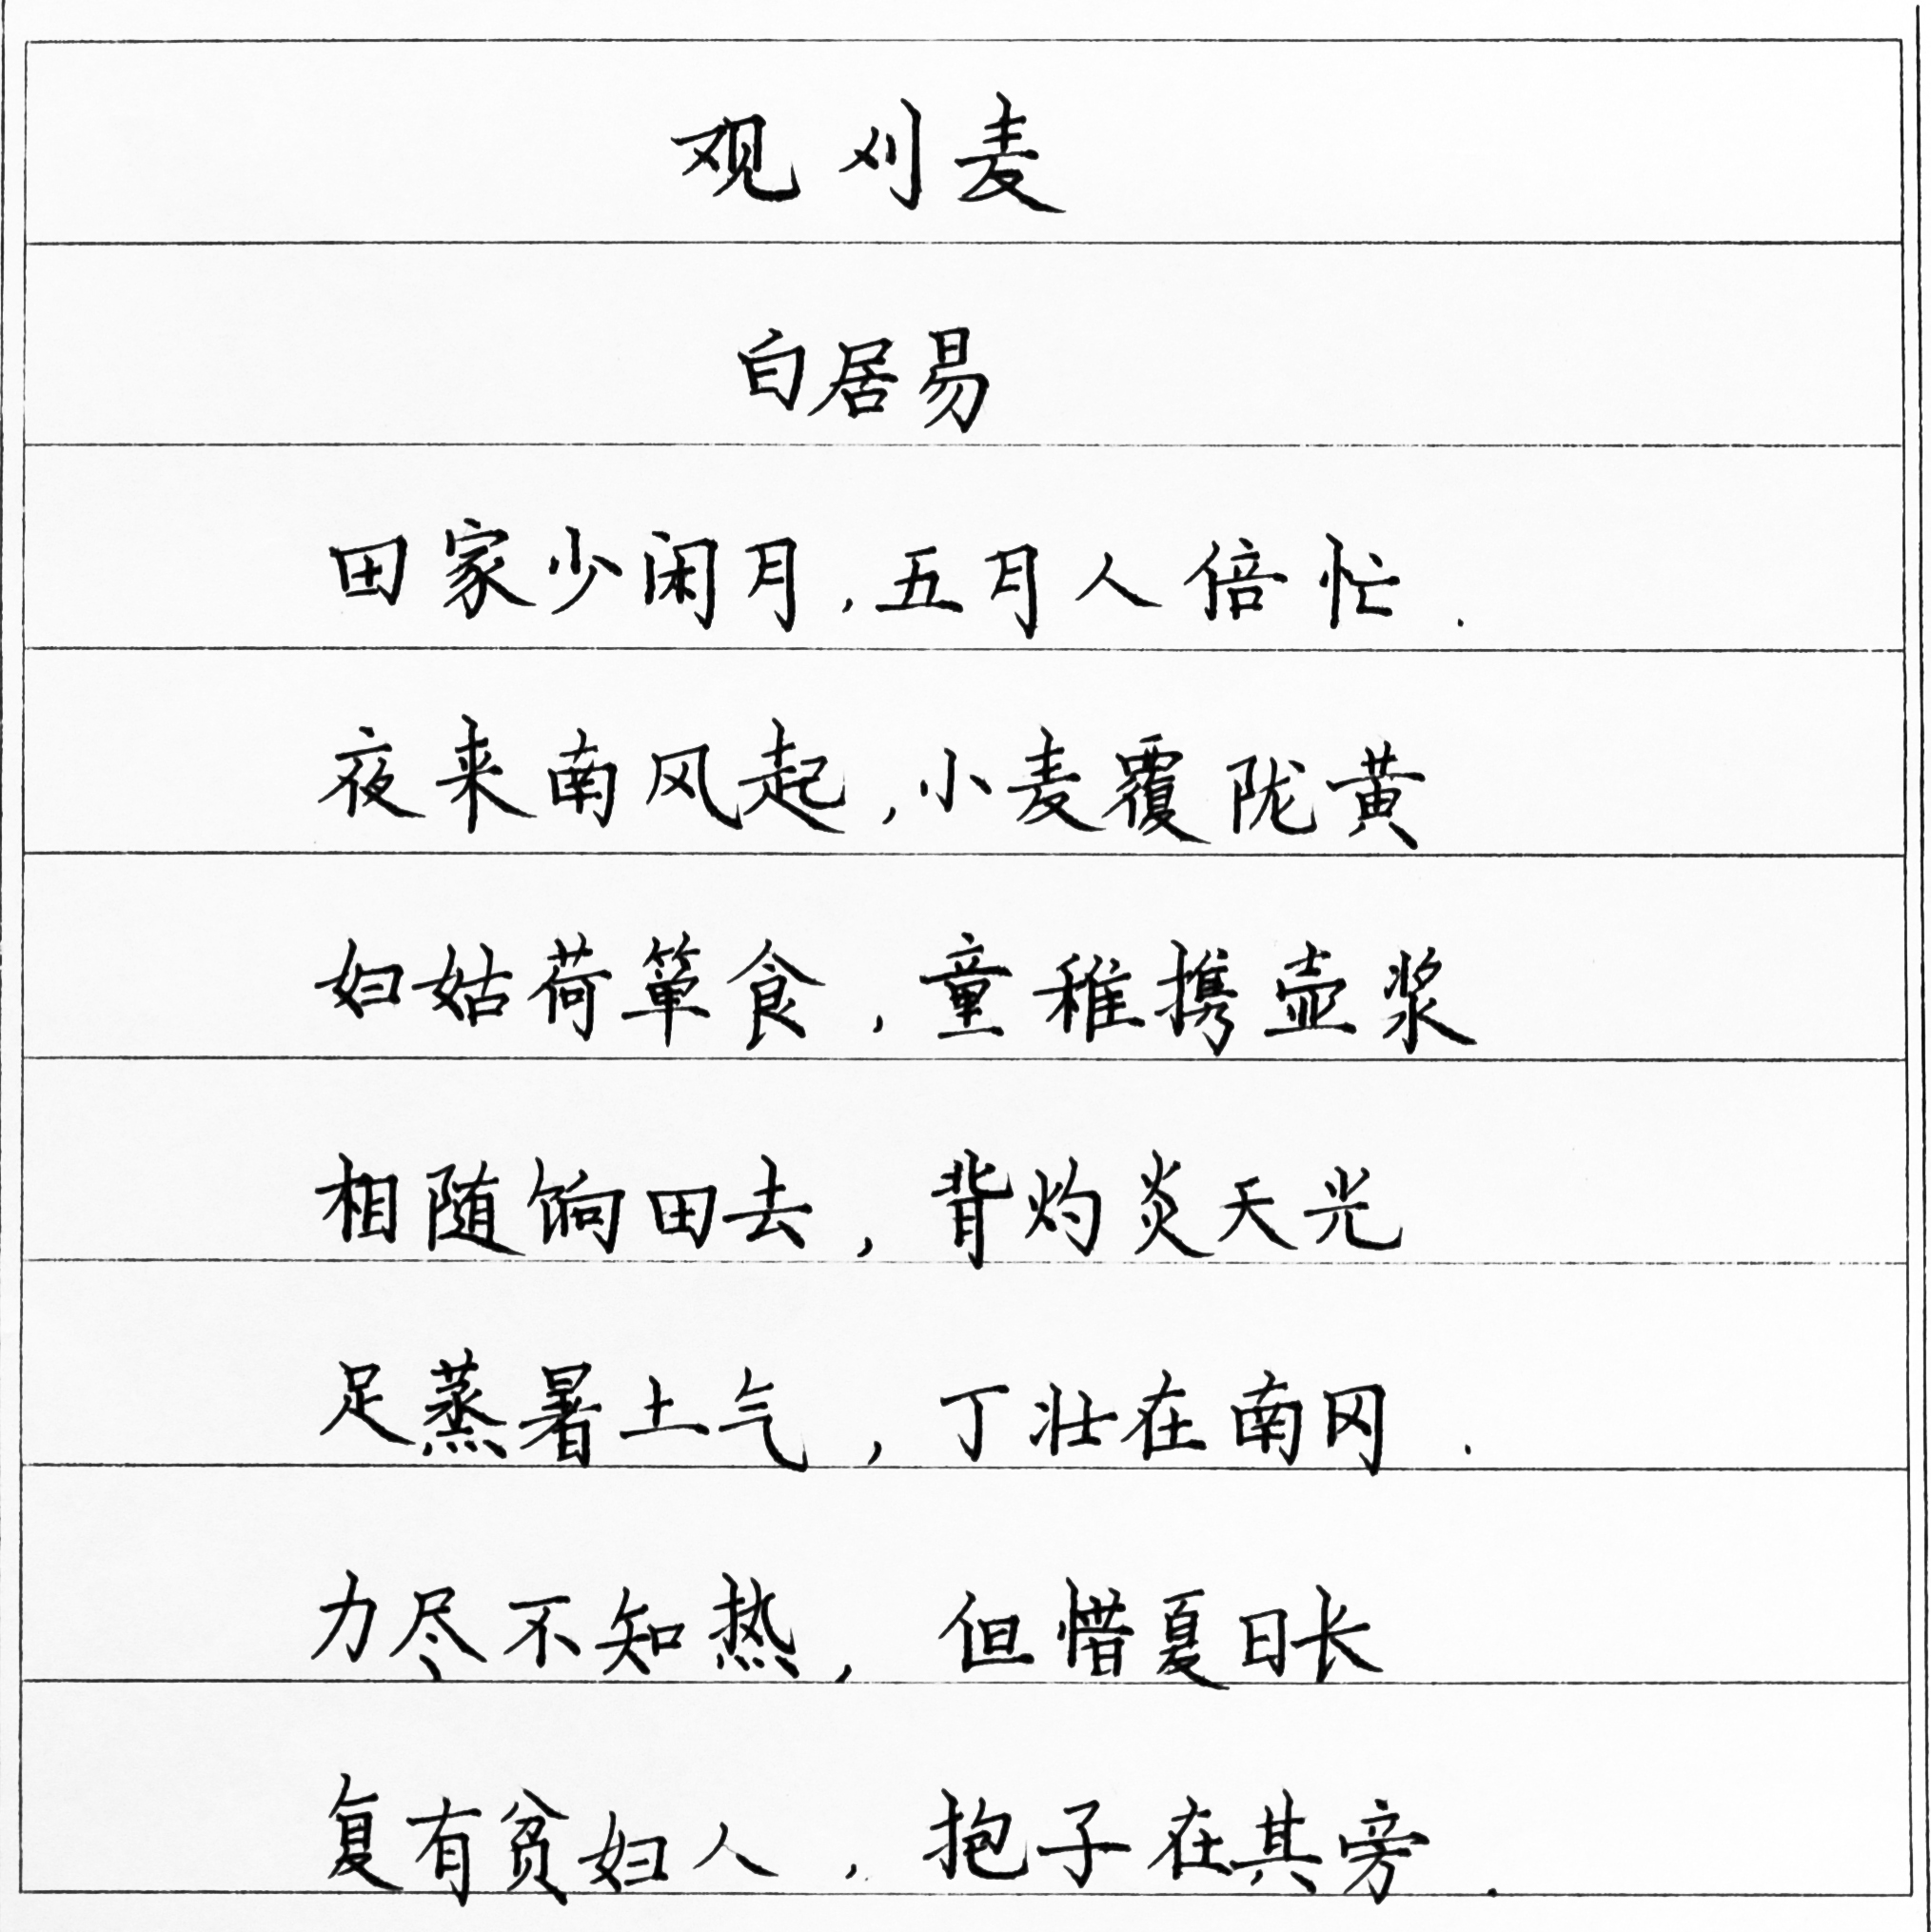 观刈麦
白居易
田家少闲月,五月人倍忙.
夜来南风起,小麦覆陇黄
妇姑荷箪食,童稚携壶浆
相随饷田去,背灼炎天光
足蒸暑土气,丁壮在南冈.
力尽不知热,但惜夏日长
复有贫妇人,抱子在其旁.